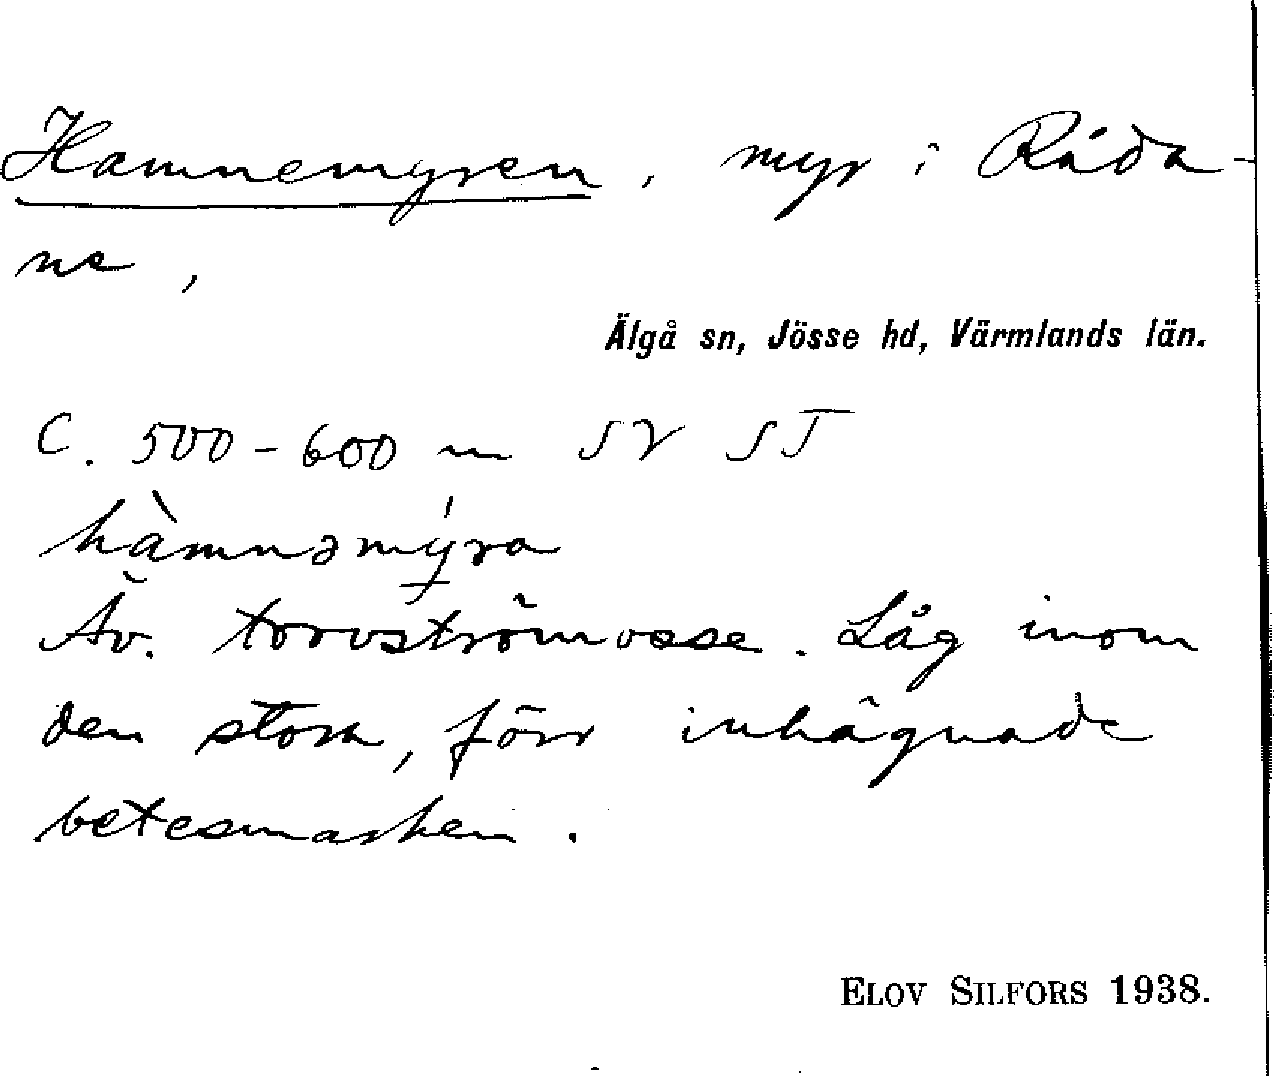 Hamnemyren, myr i Råda-
ne,
Älgå sn, Jösse hd, Värmlands län.
C. 500-600 m SV ST
hàmnəmy̆́ra
Äv. torvströmosse. Låg inom
den stora, förr inhägnade
betesmarken.
ELOV SILFORS 1938.